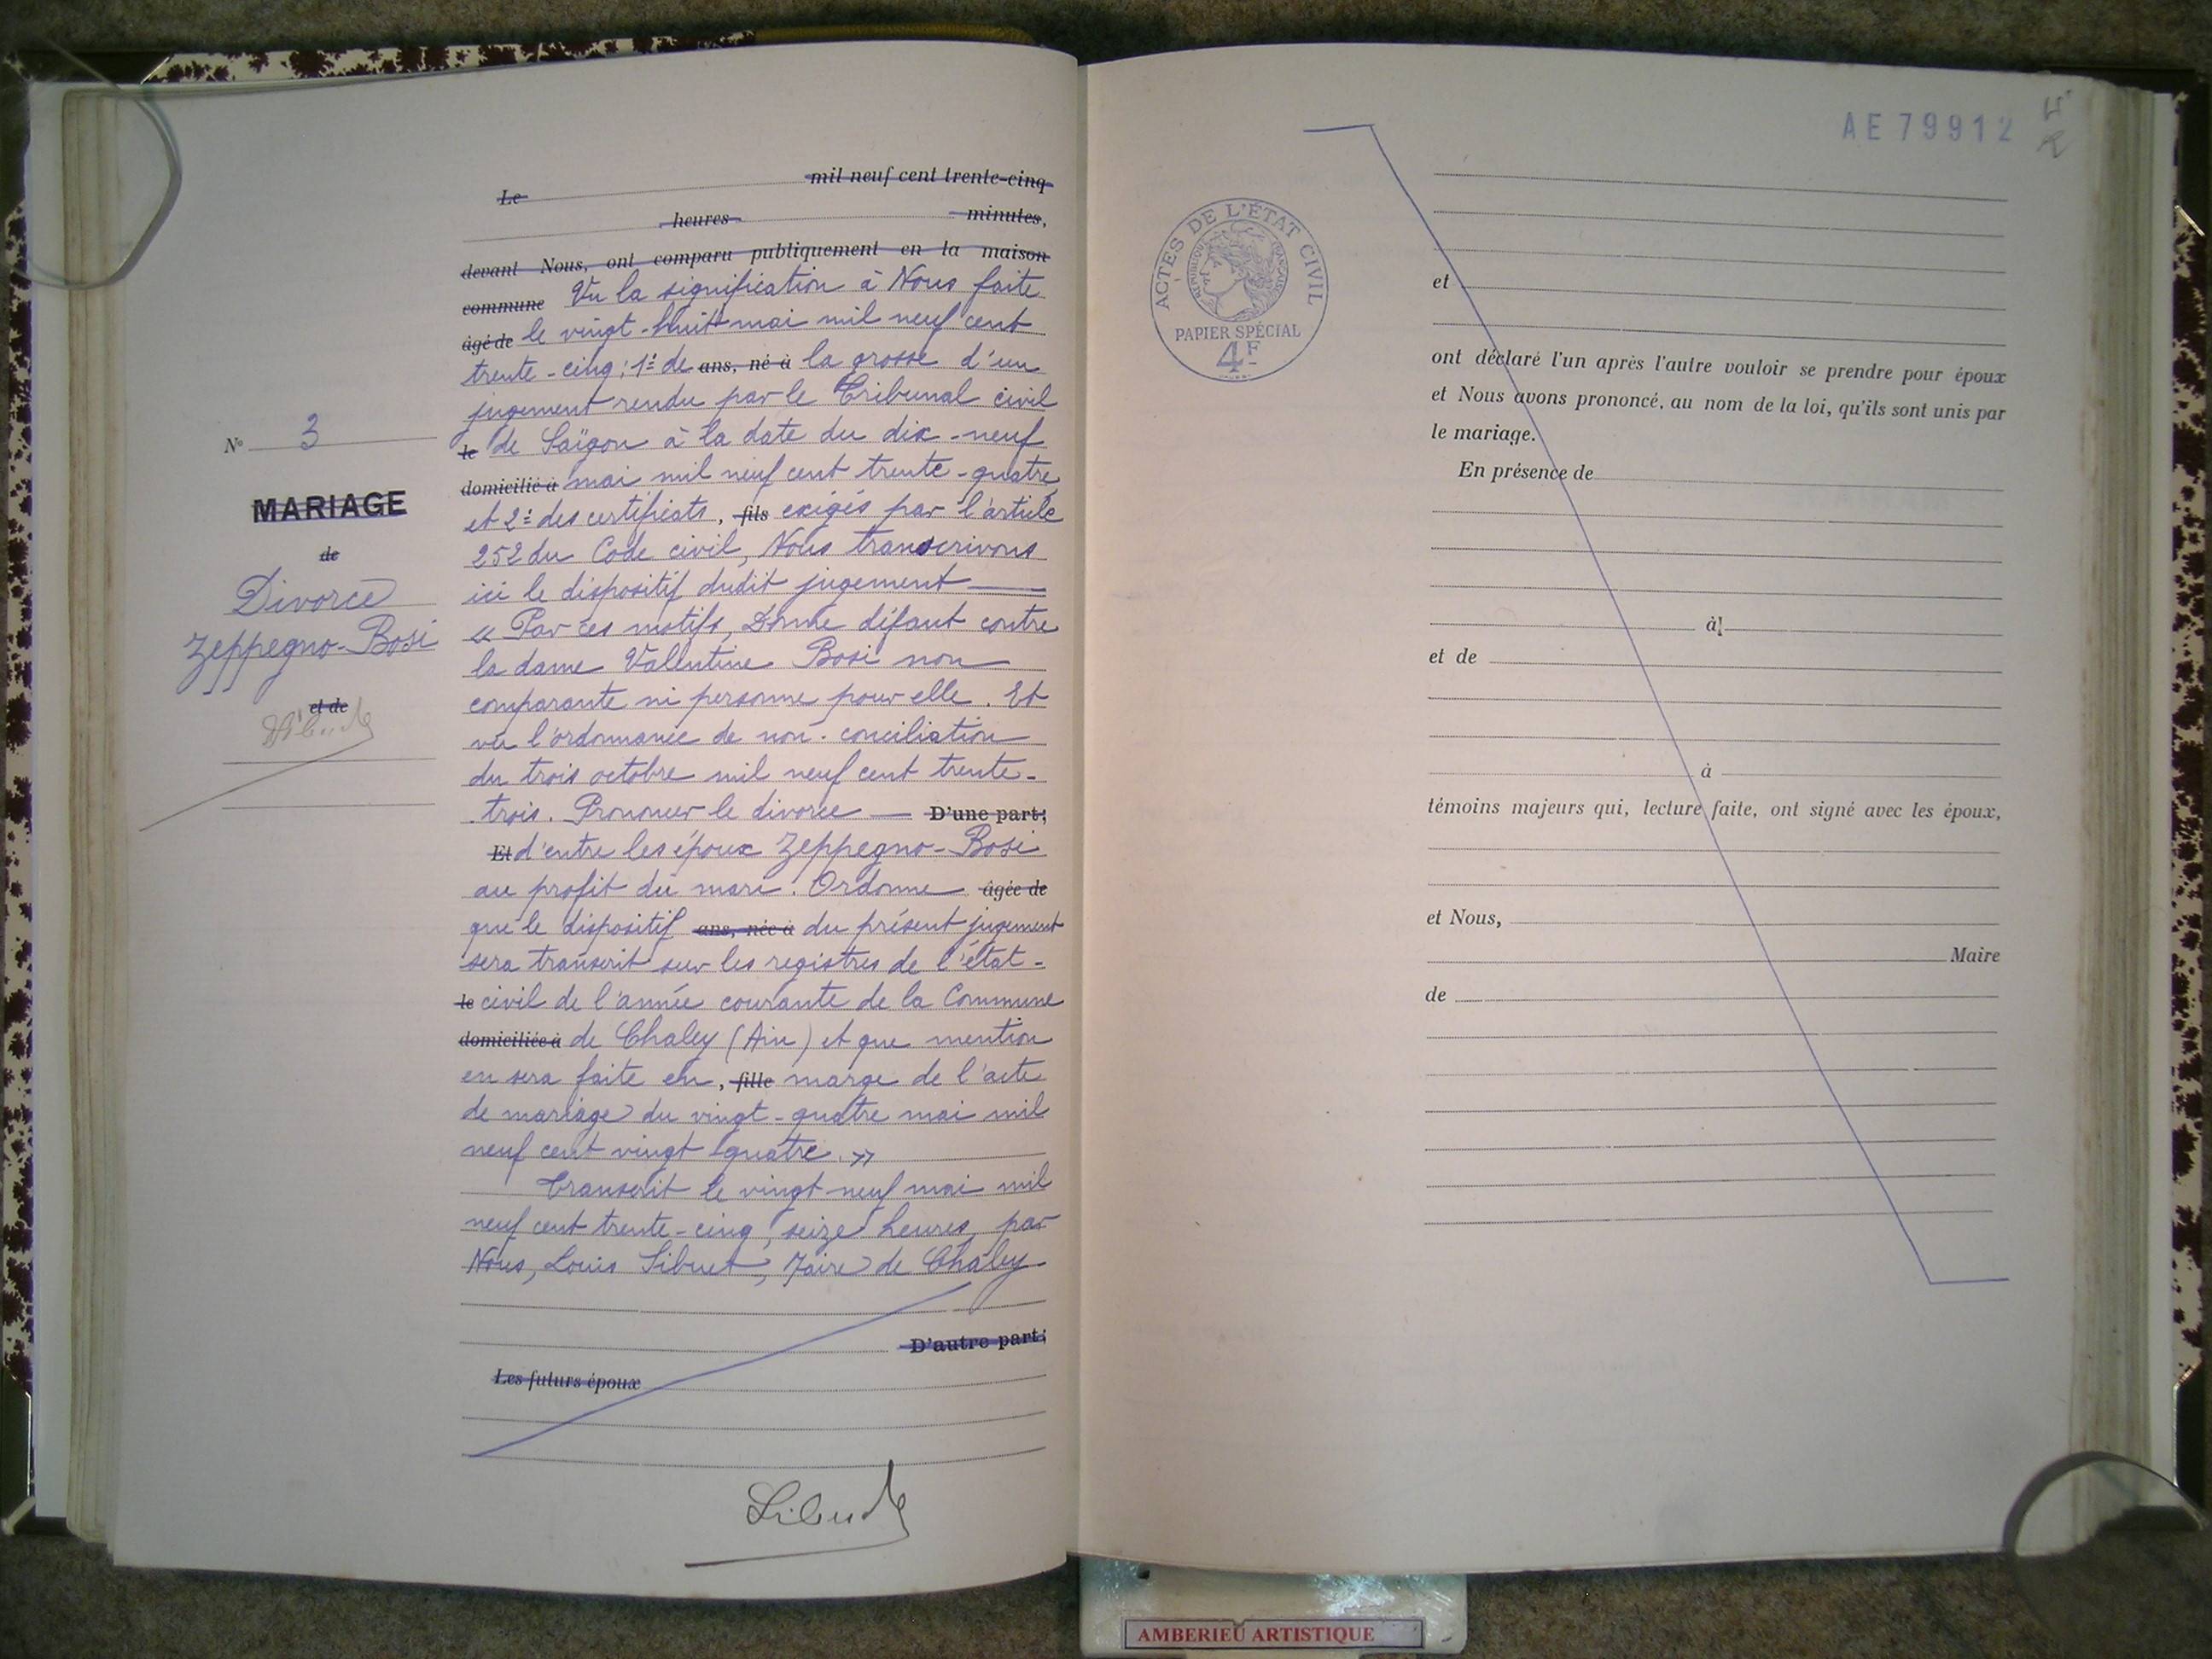 Le mil neuf cent trente-cinq
heures minutes,
devant Nous, ont comparu publiquement en la maison
commune Vu la signification à Nous faite
âgé de le vingt-huit mai mil neuf cent
trente-cinq : 1° de ans, né à la grosse d'un
jugement rendu par le Tribunal civil
le de Saïgon à la date du dix-neuf
domicilié à mai mil neuf cent trente-quatre
et 2° des certificats, fils exigés par l'article
252 du Code civil, Nous transcrivons
ici le dispositif dudit jugement
« Par ces motifs, Donne défaut contre
la dame Valentine Bosi non
comparante ni personne pour elle. Et
vu l'ordonnance de non-conciliation
du trois octobre mil neuf cent trente-
trois. Prononce le divorce — D'une part;
Et d'entre les époux Zeppegno-Bosi
au profit du mari. Ordonne âgée de
que le dispositif ans, née à du présent jugement
sera transcrit sur les registres de l'état-
le civil de l'année courante de la Commune
domiciliée à de Chaley (Ain) et que mention
en sera faite en, fille marge de l'acte
de mariage du vingt-quatre mai mil
neuf cent vingt quatre. »
Transcrit le vingt-neuf mai mil
neuf cent trente-cinq, seize heures, par
Nous, Louis Sibuet, Maire de Chaley
D'autre part;
Les futurs époux
Sibuet
N° 3
MARIAGE
de
Divorce
Zeppegno-Bosi
et de
Sibuet
AE 79912
ACTES DE L'ÉTAT CIVIL
RÉPUBLIQUE FRANÇAISE
PAPIER SPÉCIAL
4F
et
ont déclaré l'un après l'autre vouloir se prendre pour époux
et Nous avons prononcé, au nom de la loi, qu'ils sont unis par
le mariage.
En présence de
à
et de
à
témoins majeurs qui, lecture faite, ont signé avec les époux,
et Nous,
Maire
de
AMBERIEU ARTISTIQUE